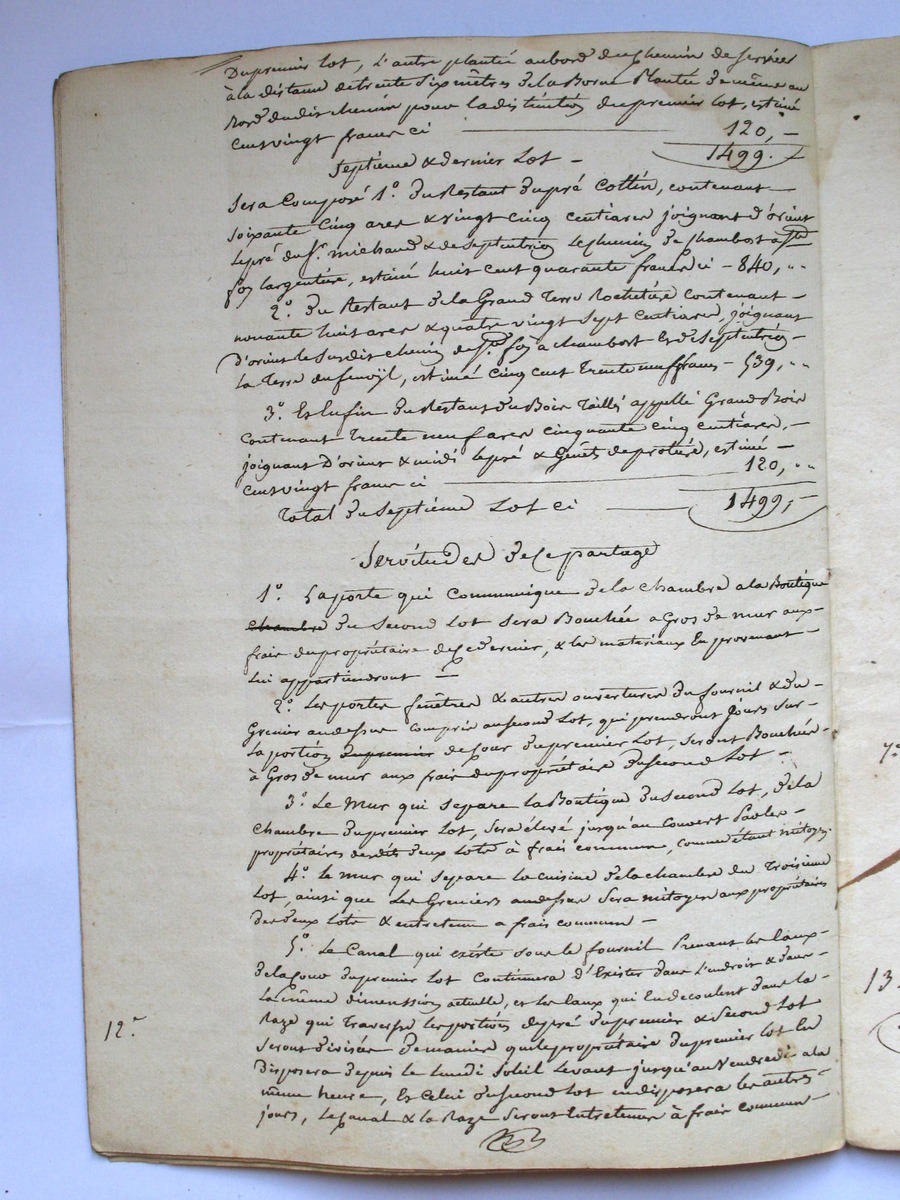 Du premier Lot, L'autre plantée au bord du chemin de service
à la distance de trente Six mêtres de la Borne Plantée de même au
Nord dudit chemin pour la distinction du premier lot, estimé
cent vingt francs ci 120,-
1499.
Septième & dernier Lot -
Sera Composé 1.° Du Restant du pré Cottin, contenant -
soixante Cinq ares & vingt cinq centiares joignant d'orient
le pré du S.r michaud & de septentrion le chemin de chambost à S.te
foy largentière, estimé huit cent quarante francs ci - 840, "
2.° Du Restant de la Grand Terre Rochetière contenant -
nonante huit ares & quatre vingt sept centiares, joignant
D'orient le susdit chemin de S.te foy à chambost Et de Septentrion -
la Terre du fenoÿl, estimé Cinq cent Trente neuf francs - 539, "
3.° Et Enfin Du Restant du Bois Taillis appellé Grand Bois
contenant Trente neuf ares cinquante cinq centiares, -
joignant D'orient & midi le pré & Genêts de protière, estimé -
cent vingt francs ci 120, "
Total du Septième Lot ci 1499,-
Servitudes de ce partage
1.° La porte qui communique de la chambre a la Boutique
chambre du second Lot sera Bouchée a Gros de mur aux -
frais du propriétaire de ce dernier, & les materiaux En provenant -
lui appartiendront -
2.° Les portes fenêtres & autres ouvertures du fournil & du -
Grenier au dessus compris au second Lot, qui prendront jours sur -
La portion du premier de Cour du premier Lot, seront Bouchées -
à Gros de mur aux frais du propriétaire du second Lot -
3.° Le Mur qui separe la Boutique du second Lot, de la
chambre du premier Lot, sera élevé jusqu'au couvert par les -
propriétaires desdits deux Lots à frais communs, comme étant mitoyen.
4.° Le mur qui separe la cuisine de la chambre du Troisième
Lot, ainsi que Les Greniers au dessus sera mitoyen aux propriétaires
des deux Lots & entretenu a frais communs -
5.° Le Canal qui existe sous le fournil Prenant les Eaux -
de la Cour du premier Lot Continuera d'Exister dans L'endroit & dans -
La même dimenssion actuelle, et les Eaux qui En decoulent dans la -
Raze qui Traverse les portions du pré du premier & Second Lot
Seront divisées de maniere que le propriétaire du premier lot En
Disposera Depuis le Lundi Soleil Levant jusqu'au Vendredi a la
même heure, Et Celui du second Lot en disposera les autres -
jours, Le canal & la Raze Seront Entretenus à frais communs -
12.e
13.